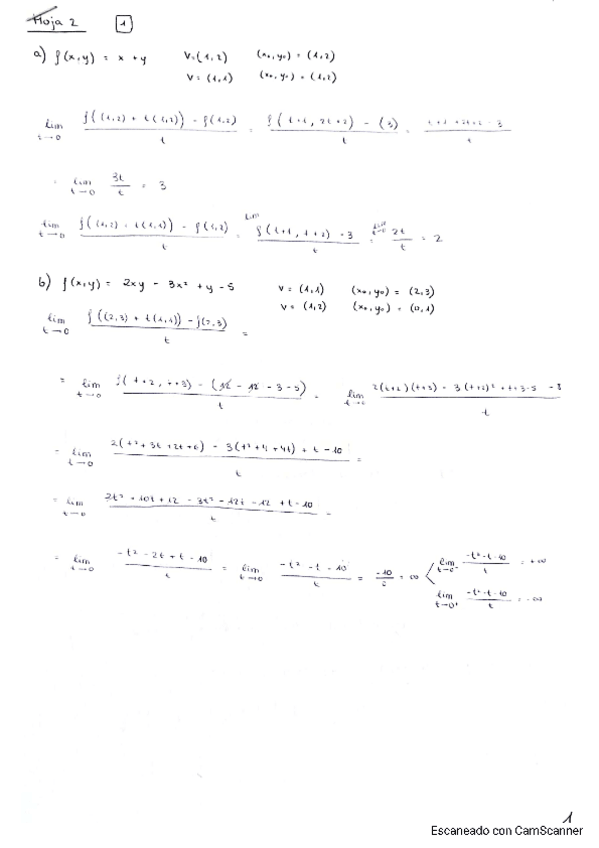 Hoja 2 1
a) f(x,y) = x + y V=(1,2) (x₀,y₀) = (1,2)
V = (1,1) (x₀,y₀) = (1,2)
lim t→0 f((1,2) + t(1,2)) - f(1,2) / t = f(t+1, 2t+2) - (3) / t = t+1 +2t+2 - 3 / t
= lim t→0 3t / t = 3
lim t→0 f((1,2) + t(1,1)) - f(1,2) / t = lim f(t+1, t+2) - 3 / t = lim t→0 2t / t = 2
b) f(x,y) = 2xy - 3x² + y - 5 V = (1,1) (x₀,y₀) = (2,3)
V = (1,2) (x₀,y₀) = (0,1)
lim t→0 f((2,3) + t(1,1)) - f(2,3) / t =
= lim t→0 f(t+2, t+3) - (12 - 12 - 3 - 5) / t = lim t→0 2(t+2)(t+3) - 3(t+2)² + t+3-5 - 8 / t
= lim t→0 2(t²+3t+2t+6) - 3(t²+4+4t) + t - 10 / t =
= lim t→0 2t² + 10t + 12 - 3t² - 12t - 12 + t - 10 / t =
= lim t→0 -t² - 2t + t - 10 / t = lim t→0 -t² - t - 10 / t = -10 / 0 = ∞ lim t→0⁻ -t²-t-10 / t = +∞
lim t→0⁺ -t²-t-10 / t = -∞
1
Escaneado con CamScanner